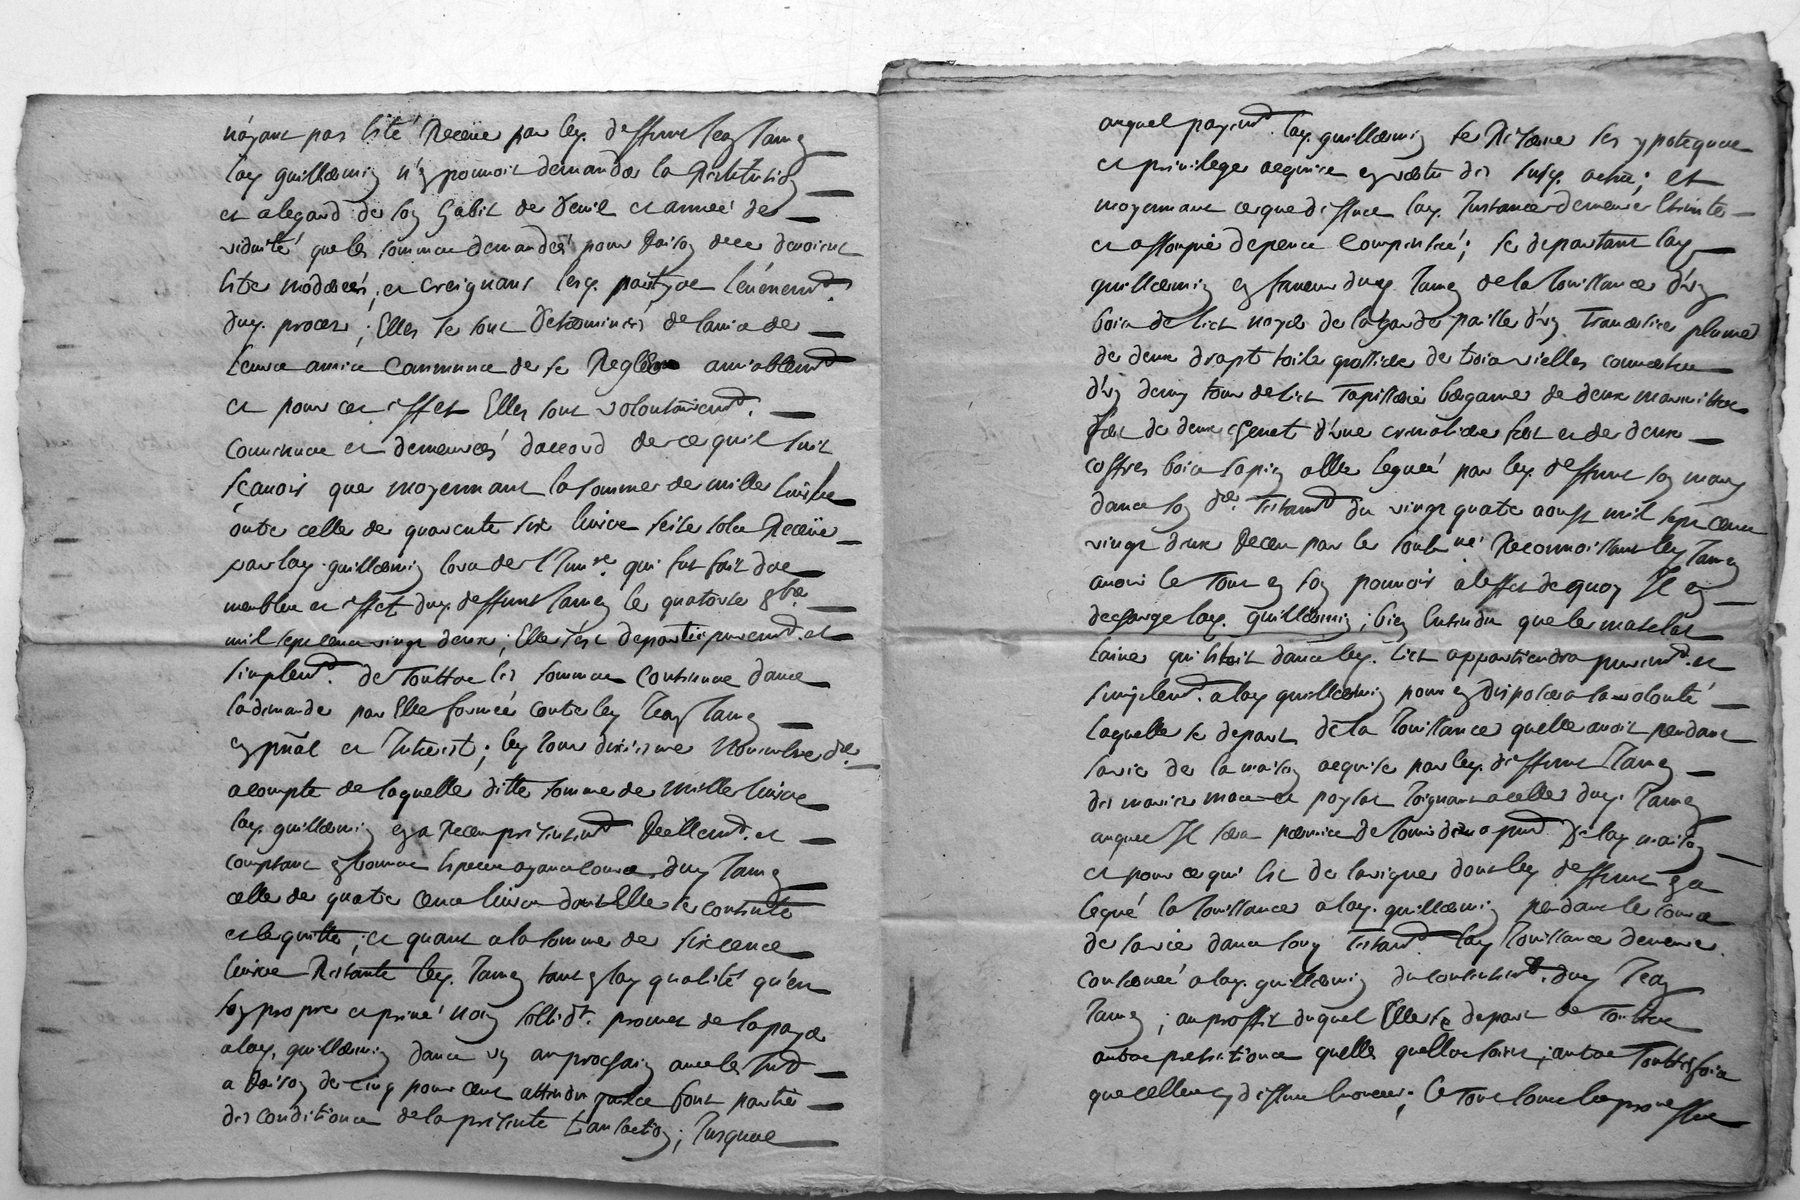 n'ayant pas esté Receue par ley. deffunt Jean Tamez
lay guillaumin n'en pouvoit demander la Restitution
et alegard de son habit de deuil et année de
viduité que les sommes demandées pour Raison dece devoient
estre moderées; et creignant lesq. partyes levenemt.
duy. proces; Elles se sont Determinées de lavis de
leurs amis communs de se Regler amiablemt
et pour cet effet Elles sont volontairemt.
convenues et demeurées daccord de ce quil suit
scavoir que moyennant la somme de mille livres
outre celle de quarente six livres seise sols Receue
par lay. guillaumin lors de l'Inre. qui fut fait des
meubles et effet duy. deffunt Tamez le quatorse 8bre.
mil sept cens vingt deux; Elle s'est departie purement. et
simplemt. de Touttes les sommes contenues dans
la demande par Elle formée contre ley Jean Tamez
en pnal et Interest; ley Jour dixieme Novembre der.
acompte de laquelle ditte somme de mille livres
lay. guillaumin en a Receu presentemt Reellemt. et
comptant en bonnes especes ayant cours duy Tamez
celle de quatre cens livres dont Elle se contente
et le quitte; et quant a la somme de six cens
livres Restante ley. Tamez tant en lay qualité qu'en
son propre et privé nom sollidt. promet de la payer
a lay. guillaumin dans un an prochain avec les Intd
a Raison de cinq pour cent attendu quils font partie
des conditions de la presente transaction; Jusques
auquel payemt. lay. guillaumin se Reserve ses ypoteques
et privileges acquis en vertu des susy. actes; et
moyennant ce que dessus lay. Instance demeure Eteinte
et assoupie depens compensés; se departant lay
guillaumin en faveur duy. Tamez de la Jouissance d'un
bois de lict noyer de la garde paille d'un Traversier plume
de deux drapt toile grossiere de trois vielles couvertes
d'un demy tour de lict Tapisserie bergame de deux marmittes
fer de deux chenet d'une cremaliere fer et de deux
coffres bois sapin alle legués par ley. deffunt son mary
dans son der. Testamt du vingt quatre aoust mil sept cens
vingt deux Receu par le soubné Reconnoissant ley Tamez
avoir le Tout en son pouvoir a leffet de quoy Il en
decharge lay. guillaumin; bien Entendu que le matelat
laine qui Estoit dans ley. lict appartiendra purement. et
simplemt. a lay guillaumin pour en disposer a sa volonté
laquelle se depart de la Jouissance quelle avoit pendant
sa vie de la maison acquise par ley. deffunt Tamez
des mariés mounet poylat Joignant a celle duy. Tamez
auquel Il sera permis de Jouir des a pnt De lay maison
et pour ce qui est de la vigne dont ley deffunt en a
legué la Jouissance a lay. guillaumin pendant le cours
de sa vie dans sony Testamt. lay Jouissance demeure
conservée a lay. guillaumin du consentemt. duy Jean
Tamez; au proffit duquel Elle se depart de Touttes
autres pretentions quelles quelles soint; autres Touttesfois
que celles cy dessus Enoncées; le Tout sous les promesses